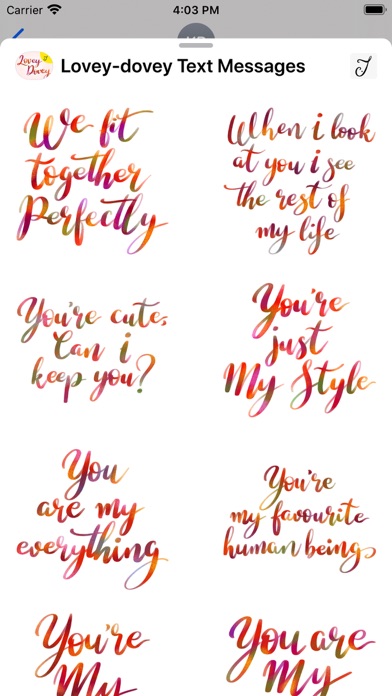 Carrier 4:03 PM
Lovey Dovey J
Lovey-dovey Text Messages
We fit
together
Perfectly
When i look
at you i see
the rest of
my life
You're cute,
Can i
keep you?
You're
just
My Style
You
are my
everything
You're
my favourite
human being
You're
My
You are
My